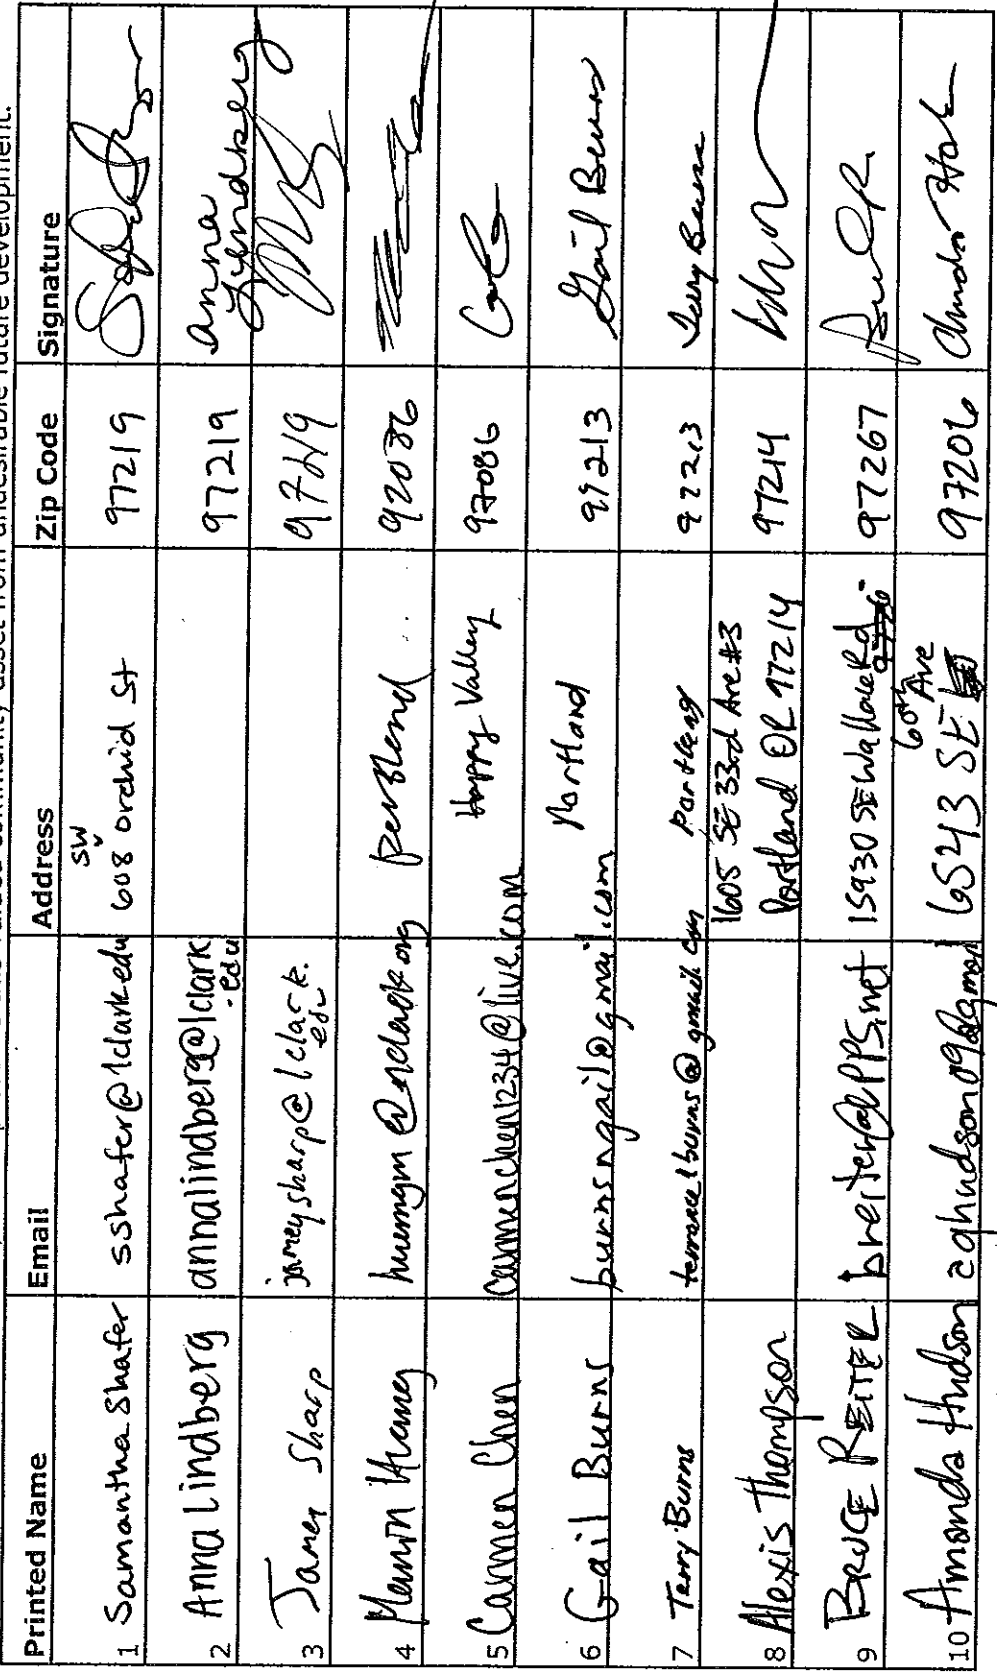 valued community asset from undesirable future development.
Printed Name Email Address Zip Code Signature
1 Samantha Shafer sshafer@lclark.edu SW 608 orchid St 97219
2 Anna Lindberg annalindberg@lclark.edu 97219 anna Lindberg
3 Jamey Sharp jameysharp@lclark.edu 97219
4 97086
5 Carmen Chen carmenchen1234@live.com Happy Valley 97086
6 Gail Burns burnsngail@gmail.com Portland 97213 Gail Burns
7 Terry Burns terrance1burns@gmail.com Portland 97213 Terry Burns
8 Alexis Thompson 1605 SE 33rd Ave #3
Portland OR 97214 97214
9 BRUCE REITER breiter@PPS.net 15930 SE Wallace Rd 97267
10 Amanda Hudson 6543 SE 60th Ave 97206